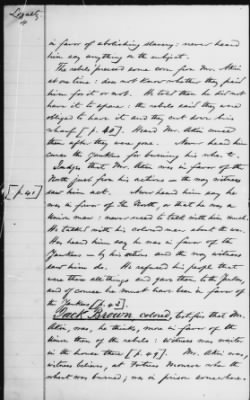 Loyalty.
in favor of abolishing slavery: never heard
him say anything on the subject.
The rebels pressed some corn from Mr. Akin
at one time: does not know whether they paid
him for it or not. He told them he did not
have it to spare: the rebels said they were
obliged to have it and they cut down his
wharf [p. 40]. Heard Mr. Akin curse
them after they were gone. Never heard him
curse the Yankees for burning his
Judges that Mr. Akin was in favor of the
North just from his actions – the way witness
[p. 41] saw him act. Never heard him say he
was in favor of the North, or that he was a
Union man: never used to talk with him much.
He talked with his colored men about the war.
Has heard him say he was in favor of the
Yankees – by his actions and the way witness
saw him do. He refused his people that
were there all things and gave them to the Yankees,
and of course he must have been in favor of
the Yankees
Jack Brown, colored, testifies that Mr.
Akin, was, he thinks, more in favor of the
Union than of the rebels: witness was waiter
in the house then [p. 49]. Mr. Akin was,
witness believes, at Fortress Monroe when the
wharf was burned; was in prison somewhere